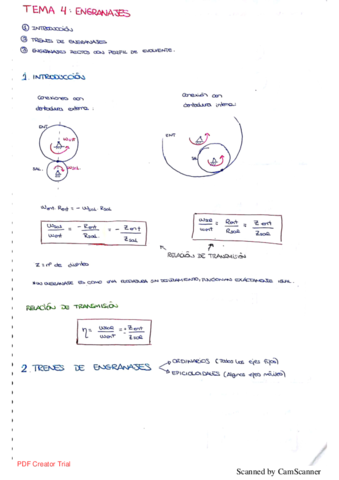 TEMA 4: ENGRANAJES
① INTRODUCCIÓN
② TRENES DE ENGRANAJES
③ ENGRANAJES RECTOS CON PERFIL DE EVOLVENTE.
1. INTRODUCCIÓN
conexiones con
dentadura externa.
conexión con
dentadura interna.
ENT
ω ent
SAL
ω sal
ENT
SAL
ω ent Rent = - ω sal Rsal
ω sal / ω ent = - Rent / Rsal = - Z ent / Z sal
ω sal / ω ent = Rent / Rsal = Z ent / Z sal
RELACIÓN DE TRANSMISIÓN
Z = nº de dientes
*un engranaje es como una rodadura sin deslizamiento, funcionan exactamente igual.
RELACIÓN DE TRANSMISIÓN
η = ω sal / ω ent = Z ent / Z sal
2. TRENES DE ENGRANAJES
ORDINARIOS (Todos los ejes fijos)
EPICICLOIDALES (Algunos ejes móviles)
PDF Creator Trial
Scanned by CamScanner